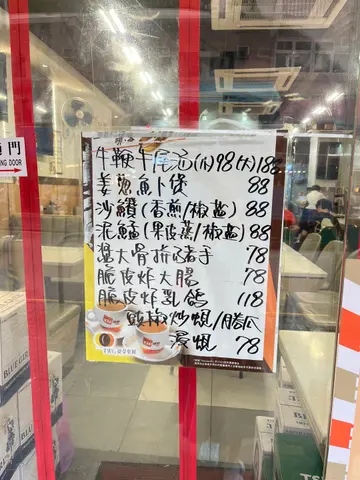 門
NG DOOR
牛鞭牛尾湯(小)98(大)188
姜葱魚卜煲 88
沙鑽(香煎/椒鹽) 88
泥鯭(果皮蒸/椒鹽) 88
醬大骨拼豬手 78
脆皮炸大腸 78
脆皮炸乳鴿 118
豉椒炒蜆/勝瓜
浸蜆 78
BLUE GIRL